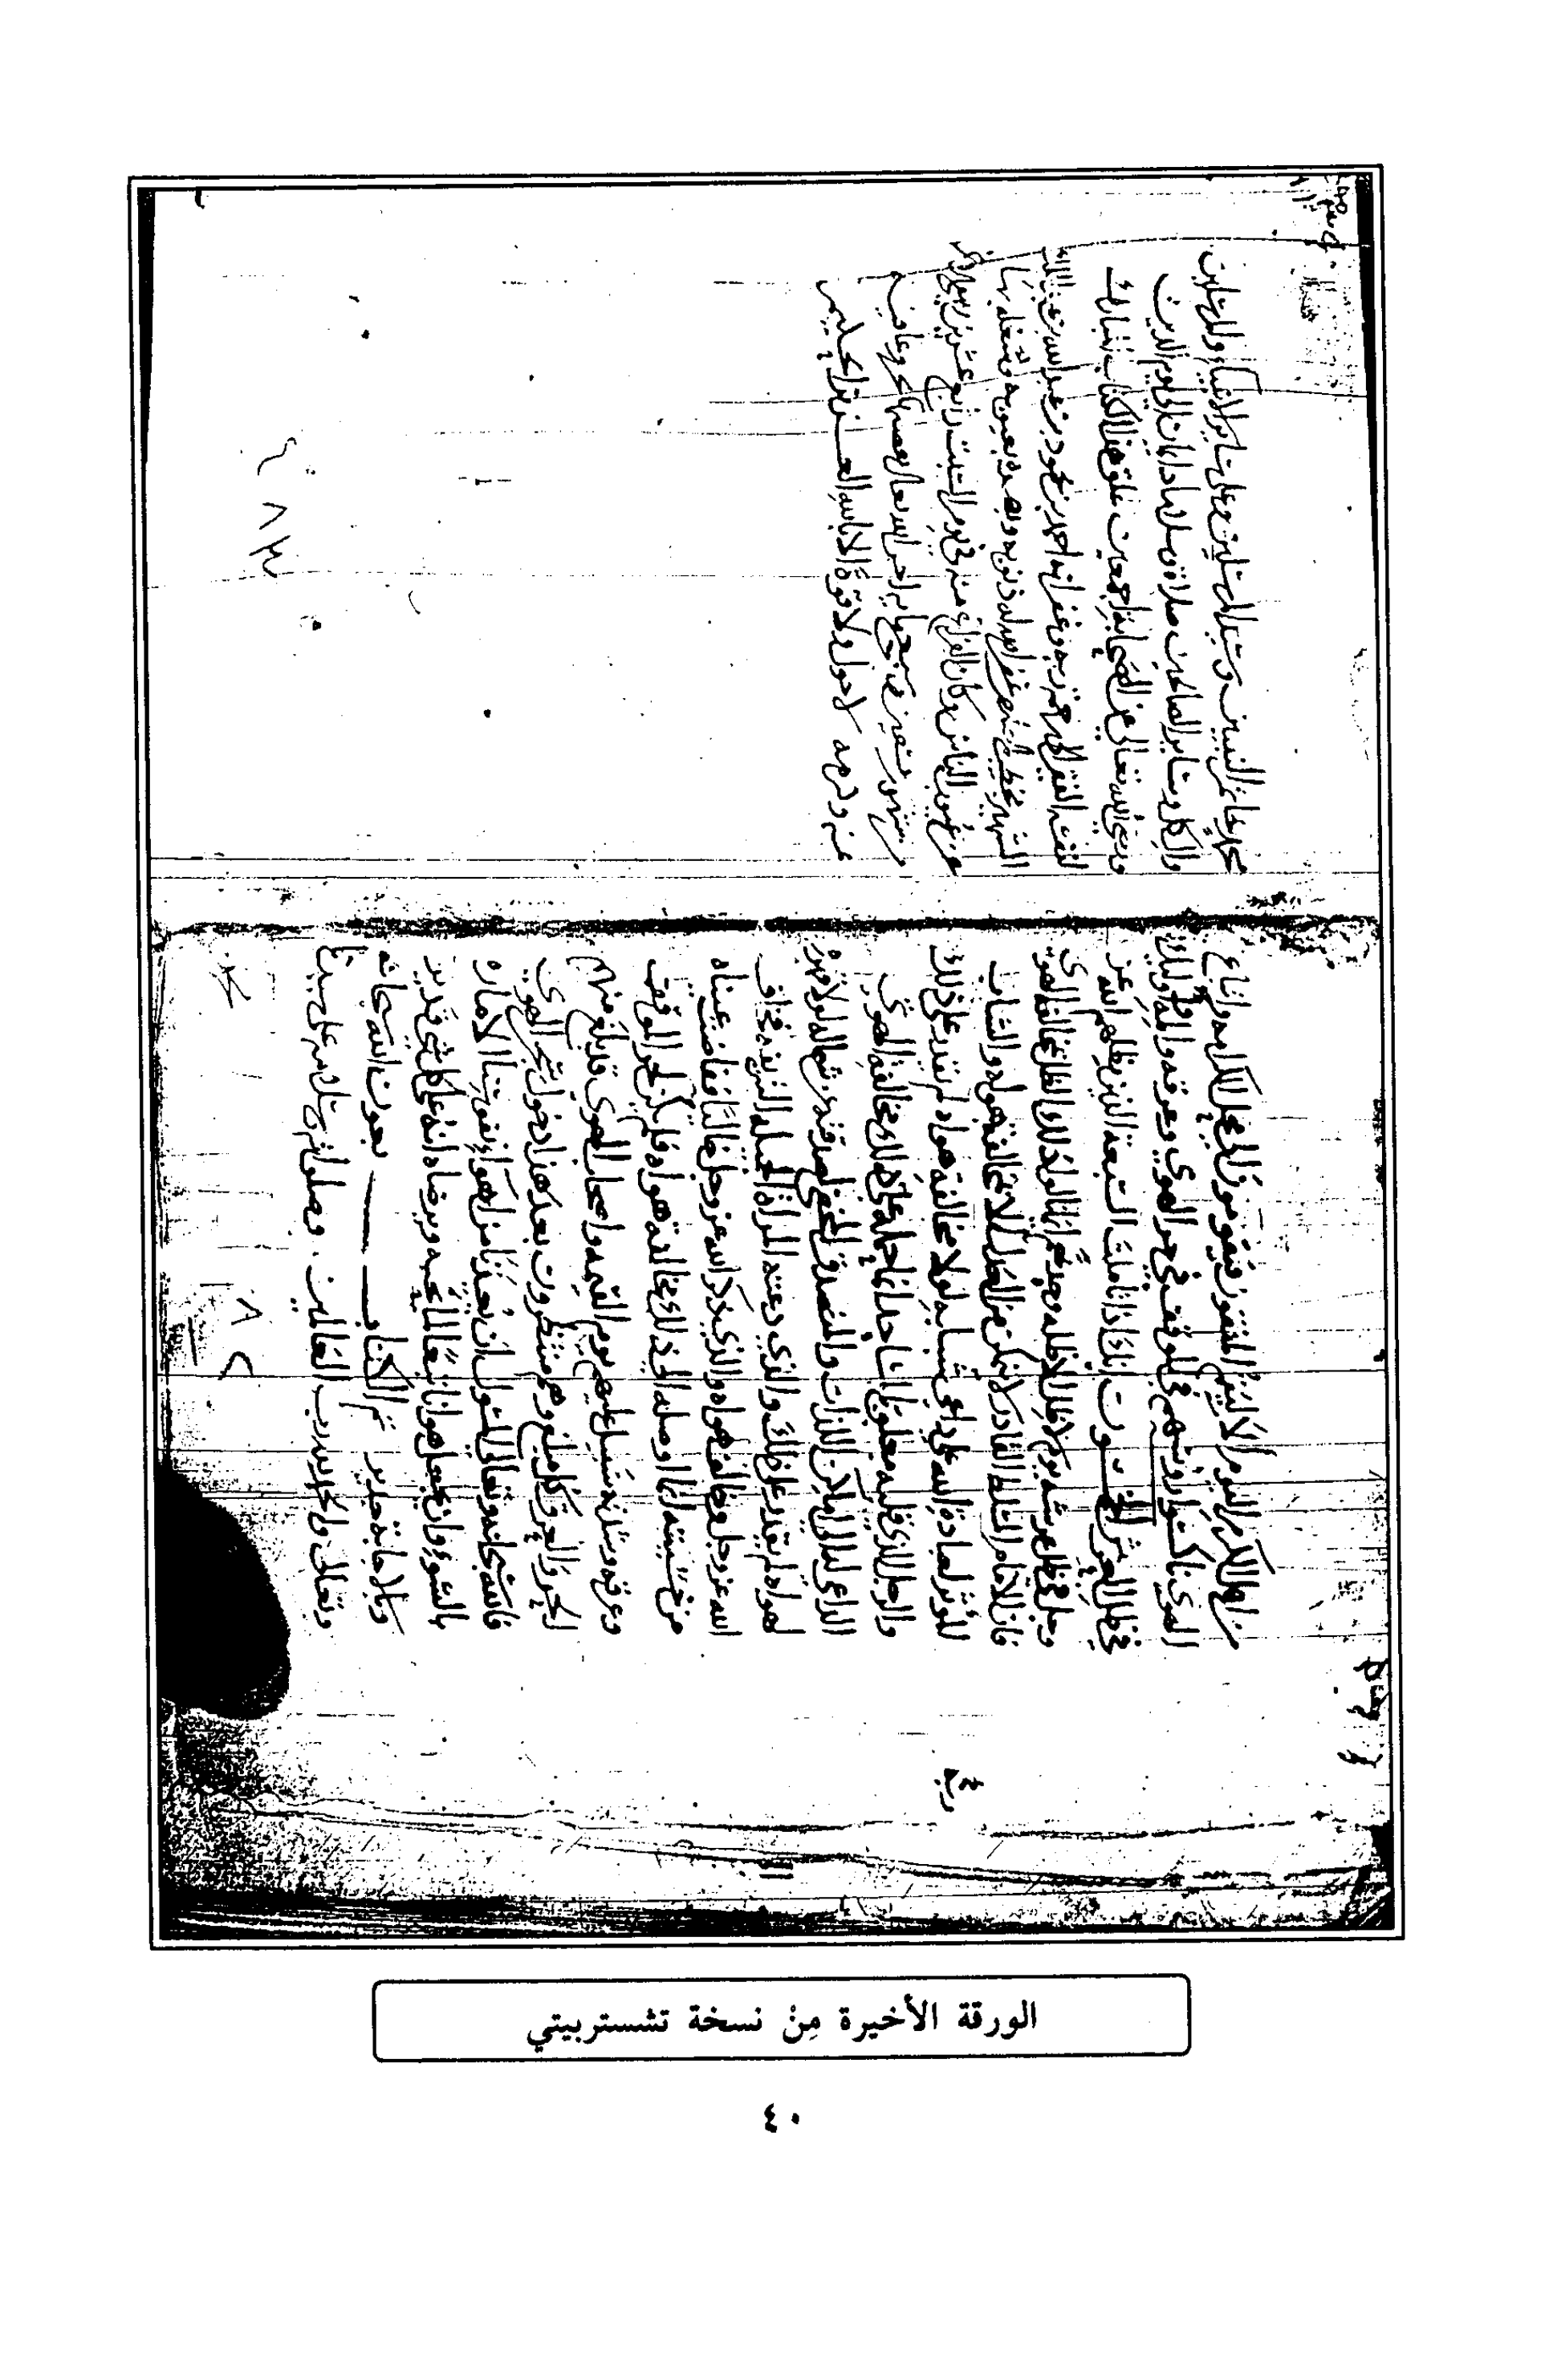 من اهل الكرم اليوم الا ليقم المتقون فيقومون الى محل الكرامه واتباع
الهوى ناكسوا رؤسهم في الموقف في حر الهوى وعرقه والمه واولئك
في ظل العرش الخمسون انك اذا تاملت السبعة الذين يظلهم الله عز
وجل في ظل عرشه يوم لا ظل الا ظله وجدتهم انما نالوا ذلك الظل بمخالفة الهوى
فان الامام المسلط القادر لا يتمكن من العدل الا بمخالفة هواه والشاب
المؤثر لعبادة الله على داعي شبابه لولا مخالفة هواه لم يقدر على ذلك
والرجل الذي قلبه معلق بالمساجد انما حمله على ذلك مخالفة الهوى
الداعي له الى اماكن اللذات والمتصدق المخفي لصدقته عن شماله لولا قهره
لهواه لم يقدر على ذلك والذي دعته المراة الجميله الشريفه فخاف
الله عز وجل وخالف هواه والذي ذكر الله عز وجل خاليا ففاضت عيناه
من خشيته انما اوصله الى ذلك مخالفة هواه فلم يكن لحر الموقف
وعرقه وشدته سبيل عليهم يوم القيمه واصحاب الهوى قد بلغ منهم
الحر والعرق كل مبلغ وهم منتظرون بعد هذا دخول سجن الهوى
فالله سبحانه وتعالى المسئول ان يعيذنا من اهواء نفوسنا الاماره
بالسوء وان يجعل هوانا تبعا لما يحبه ويرضاه انه على كل شي قدير
وبالاجابة جدير تم الكتاب بعون الله سبحانه
وتعالى والحمد لله رب العالمين وصلواته وسلامه على سيدنا
محمد خاتم النبيين وسيد المرسلين وعلى سائر الانبياء والمرسلين
وال كل وسائر الصالحين صلاة وسلاما دايمان الى يوم الدين
ورضي الله تعالى عن الصحابة اجمعين علق هذا الكتاب المبارك
لنفسه الفقير الى رحمة ربه وغفرانه احمد بن محمود بن عبد الله
الشهير غفر الله له ذنوبه
عن عيوب الناس وكان الفراغ منه في يوم السبت رابع عشرين
احسن الله تعالى
لا حول ولا قوة الا بالله العزيز الحكيم
الورقة الأخيرة مِنْ نسخة تشستربيتي
٤٠